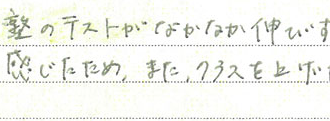 塾のテストがなかなか伸びず
感じたため、また、クラスを上げ